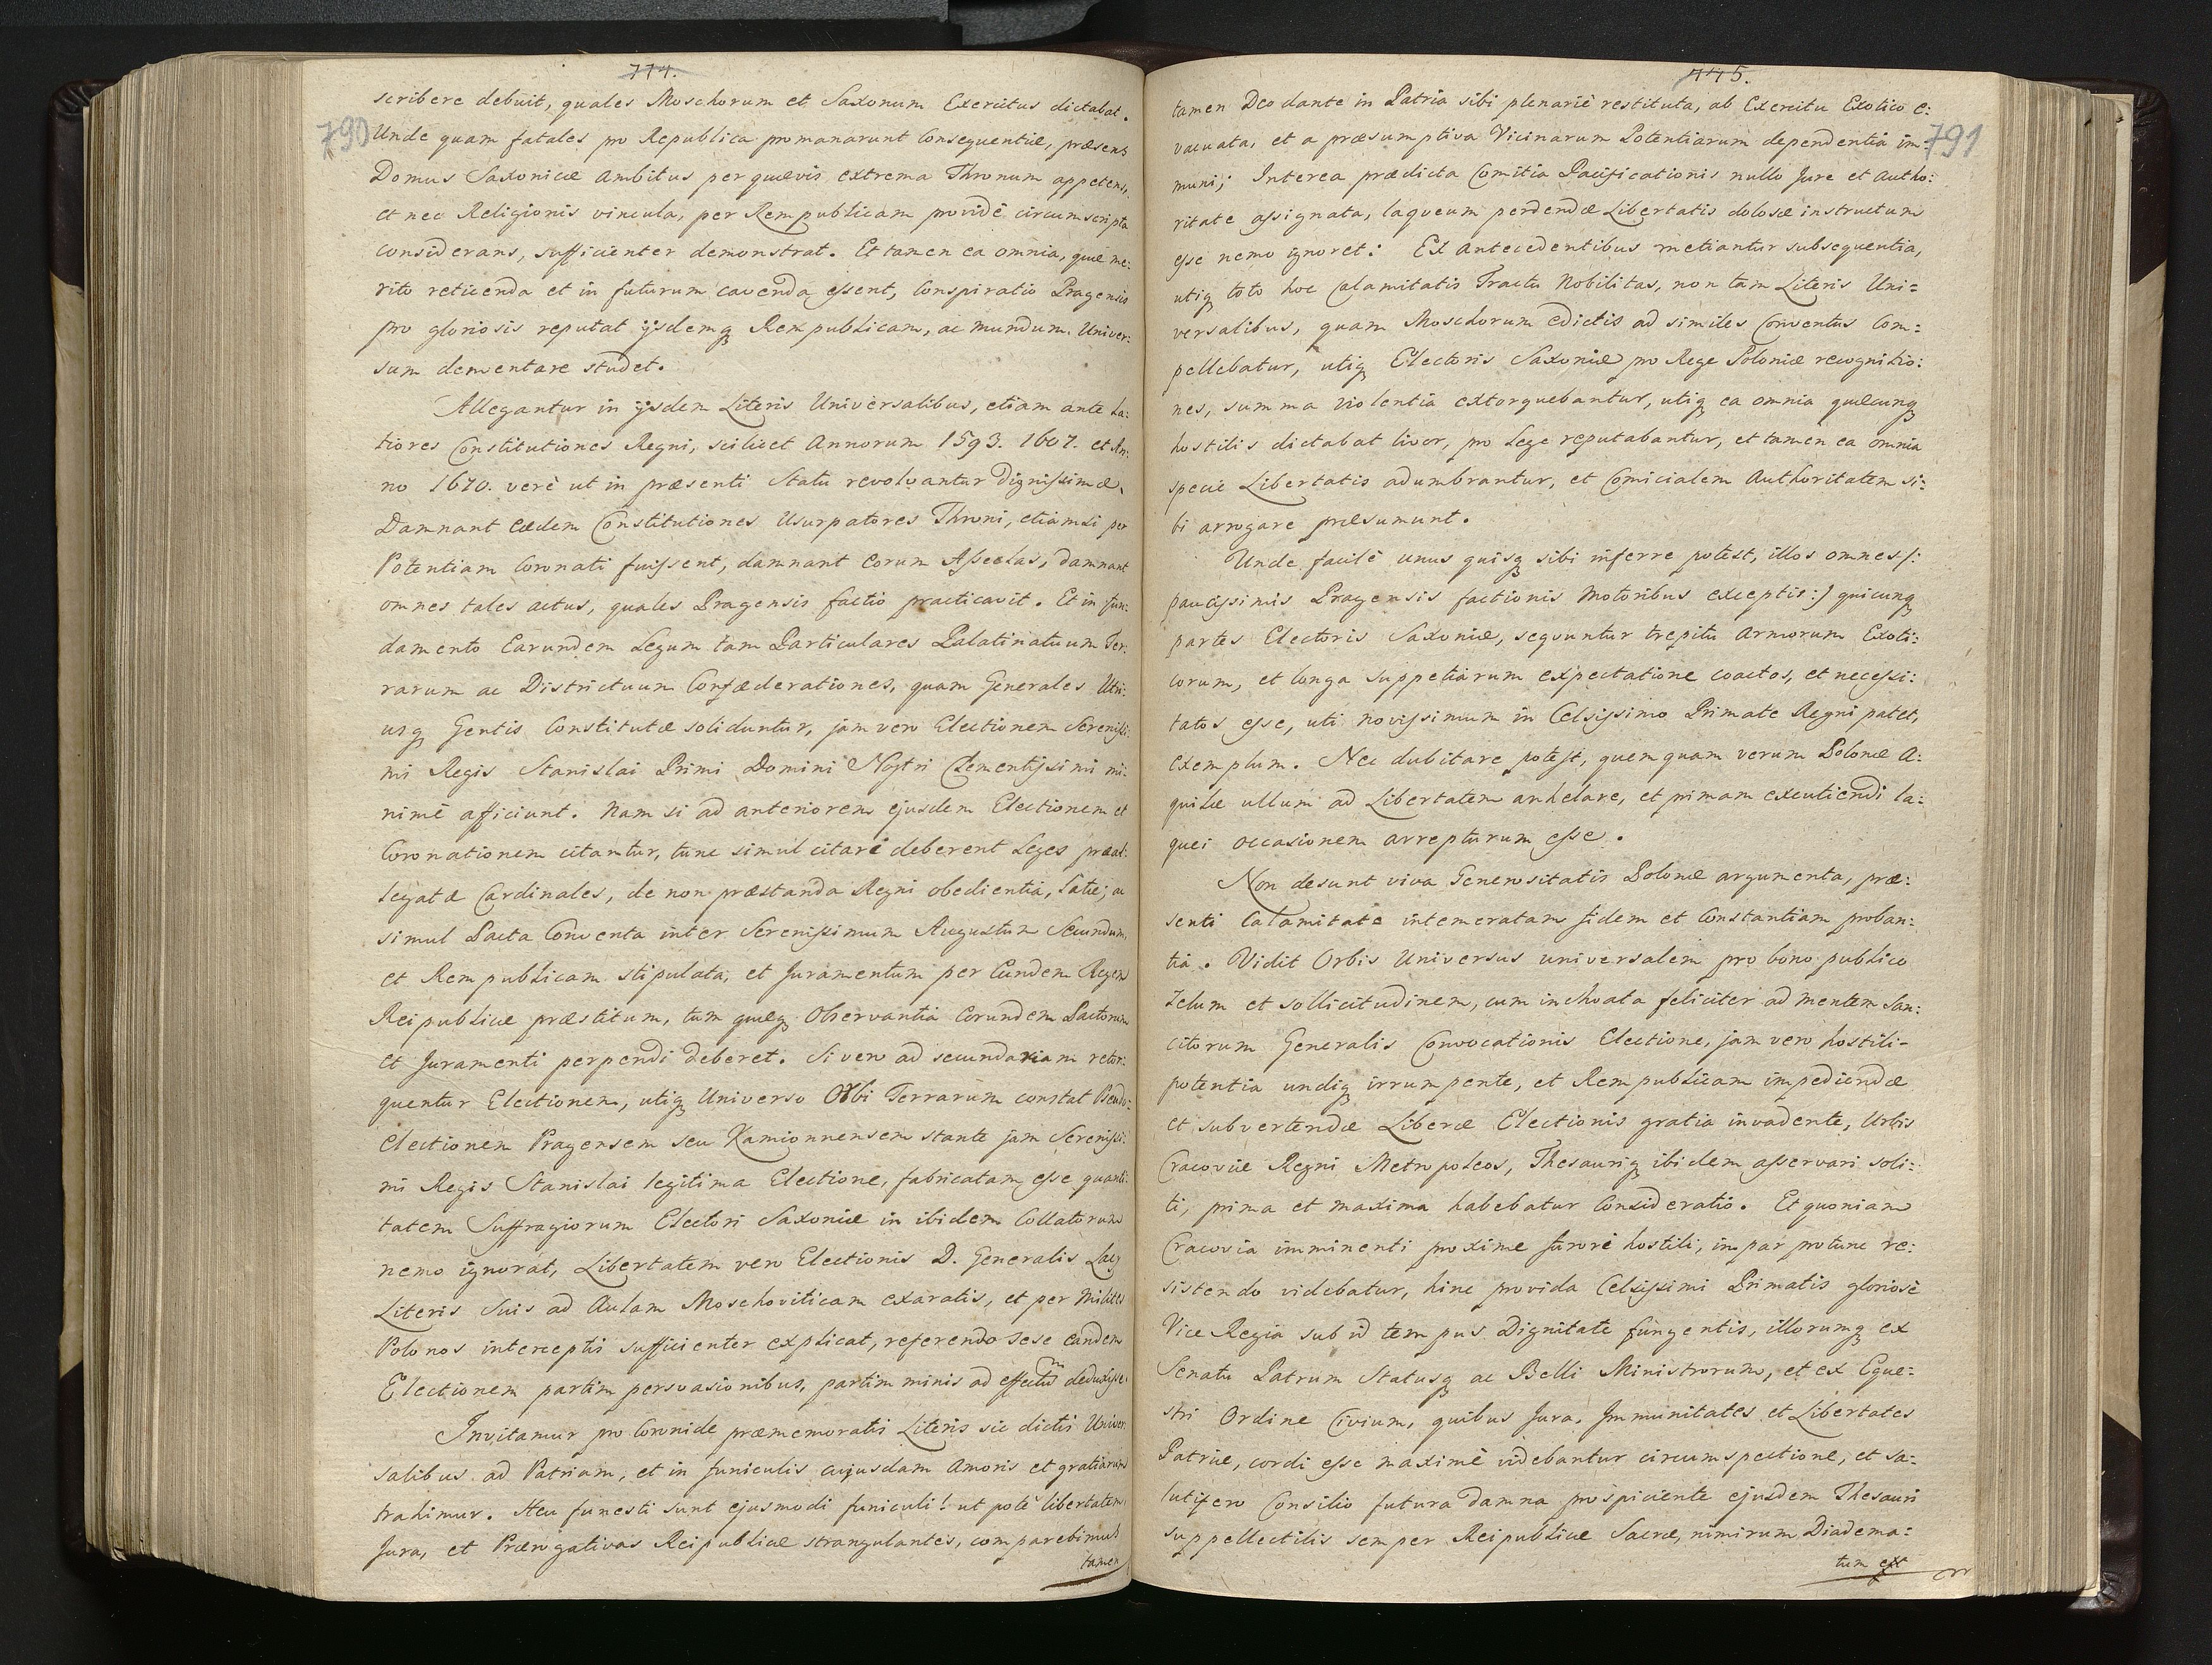 774.
790
scribere debuit, quales Moschorum et Saxonum Exercitus dictabat.
Unde quam fatales pro Republica promanarunt Consequentiæ, præsens
Domus Saxonicæ Ambitus per quævis extrema Thronum appetens,
et nec Religionis vincula, per Rempublicam providè circumscripta
considerans, sufficienter demonstrat. Et tamen ea omnia, quæ me:
rito reticenda et in futurum cavenda essent, Conspiratio Pragensis
pro gloriosis reputat ijsdemq Rempublicam, ac mundum Univer:
sum dementare studet.
Allegantur in ijsdem Literis Universalibus, etiam ante la:
tiores Constitutiones Regni, scilicet Annorum 1593. 1607. et An:
no 1670. verè ut in præsenti Statu revolvantur Dignissimæ.
Damnant eædem Constitutiones Usurpatores Throni, etiamsi per
Potentiam Coronati fuissent, damnant eorum Asseclas, damnant
omnes tales actus, quales Pragensis factio practicavit. Et in fun:
damento Earundem Legum tam Particulares Palatinatuum Ter:
rarum ac Districtuum Confæderationes, quam Generales Utri:
usq Gentis Constitutæ soliduntur, jam vero Electionem Serenissi:
mi Regis Stanislai Primi Domini Nostri Clementissimi mi:
nimè afficiunt. Nam si ad anteriorem ejusdem Electionem et
Coronationem citantur, tunc simul citari deberent Leges præal:
legatæ Cardinales, de non præstanda Regni obedientia, Latæ; ac
simul Pacta Conventa inter Serenissimum Augustum Secundum,
et Rempublicam stipulata, et Juramentum per Eundem Regem
Reipublicæ præstitum, tum quæq Observantia Eorundem Pactorum
et Juramenti perpendi deberet. Si vero ad secundariam retor:
quentur Electionem, utiq Universo Orbi Terrarum constat Pseudo:
electionem Pragensem seu Kamionnensem stante jam Serenissi:
mi Regis Stanislai legitima Electione, fabricatam esse quanti:
tatem Suffragiorum Electori Saxoniæ in ibidem Collatorum
nemo ignorat, Libertatem vero Electionis D. Generalis Lacy
Literis Suis ad Aulam Moschoviticam exaratis, et per Milites
Polonos interceptis sufficienter explicat, referendo sese eandem
Electionem partim persvasionibus, partim minis ad effectum deduxisse.
Invitamur pro Coronide præmemoratis Literis sic dictis Univer:
salibus ad Patriam, et in funiculis cujusdam Amoris et gratiarum
trahimur. Heu funesti sunt ejusmodi funiculi! ut potè libertatem
Jura, et Prærogativas Reipublicæ strangulantes, comparebimus
tamen
775.
791
tamen Deo dante in Patria sibi plenariè restituta, ab Exercitu Exotico e:
vacuata, et a præsumptiva Vicinarum Potentiarum dependentia im:
muni; Interea prædicta Comitia Pacificationis nullo Jure et Autho:
ritate assignata, laqueum perdendæ Libertatis dolosè instructum
esse nemo ignoret: Ex Antecedentibus metiantur subsequentia,
utiq toto hoc Calamitatis Tractu Nobilitas, non tam Literis Uni=
versalibus, quam Moschorum edictis ad similes Conventus Com:
pellebatur, utiq Electoris Saxoniæ pro Rege Poloniæ recognitio:
nes, summa violentia extorquebantur, utiq ea omnia quæcunq
hostilis dictabat livor, pro Lege reputabantur, et tamen ea omnia
specie Libertatis adumbrantur, et Comicialem Authoritatem si:
bi arrogare præsumunt.
Unde facilè unus quisq sibi inferre potest, illos omnes /:
paucissimis Pragensis factionis Motoribus exceptis:/ quicunq
partes Electoris Saxoniæ, seqvuntur trepitu Armorum Exoti:
corum, et longa suppetiarum expectatione coactos, et necessi:
tatos esse, uti novissimum in Celsissimo Primate Regni patet,
exemplum. Nec dubitare potest, quemquam verum Polonæ A:
quilæ ullum ad Libertatem anhelare, et primam excutiendi la:
quei occasionem arrepturum esse.
Non desunt viva Generositatis Polonæ argumenta, præ:
senti Calamitate intemeratam fidem et Constantiam proban:
tia. Vidit Orbis Universus universalem pro bono publico
Zelum et sollicitudinem, cum inchoata feliciter ad mentem San:
citorum Generalis Convocationis Electione, jam vero hostili-
potentia undiq irrumpente, et Rempublicam impediendæ
et subvertendæ Liberæ Electionis gratia invadente, Urbis
Cracoviæ Regni Metropoleos, Thesauriq ibidem asservari soli:
ti, prima et maxima habebatur Consideratio. Et quoniam
Cracovia imminenti proximè furori hostili, impar pro tunc re:
sistendo videbatur, hinc provida Celsissimi Primatis gloriosè
Vice Regia sub id tempus Dignitate fungentis, illorumq ex
Senatu Patrum Statusq ac Belli Ministrorum, et ex Eque=
stri Ordine Civium, quibus Jura, Immunitates et Libertates
Patriæ, cordi esse maximè videbantur circumspectione, et sa:
lutifero Consilio futura damna prospiciente ejusdem Thesauri
suppellectilis semper Reipublicæ Sacræ, nimirum Diadema:
tum ext